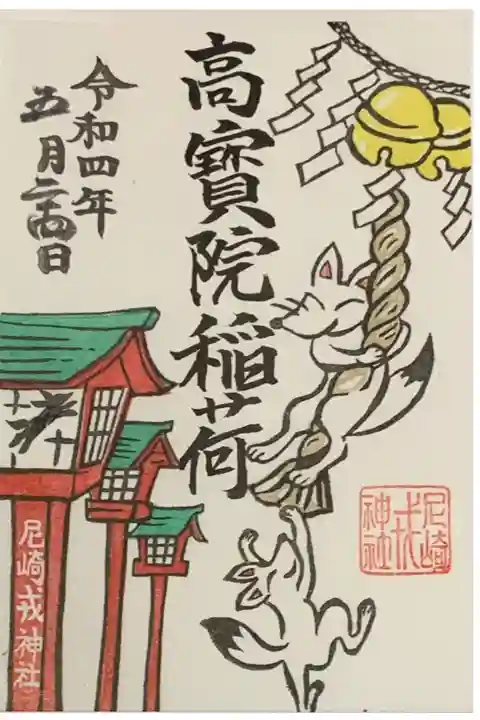 高寳院稲荷
令和四年
五月二十四日
尼崎戎神社
尼崎
戎
神社